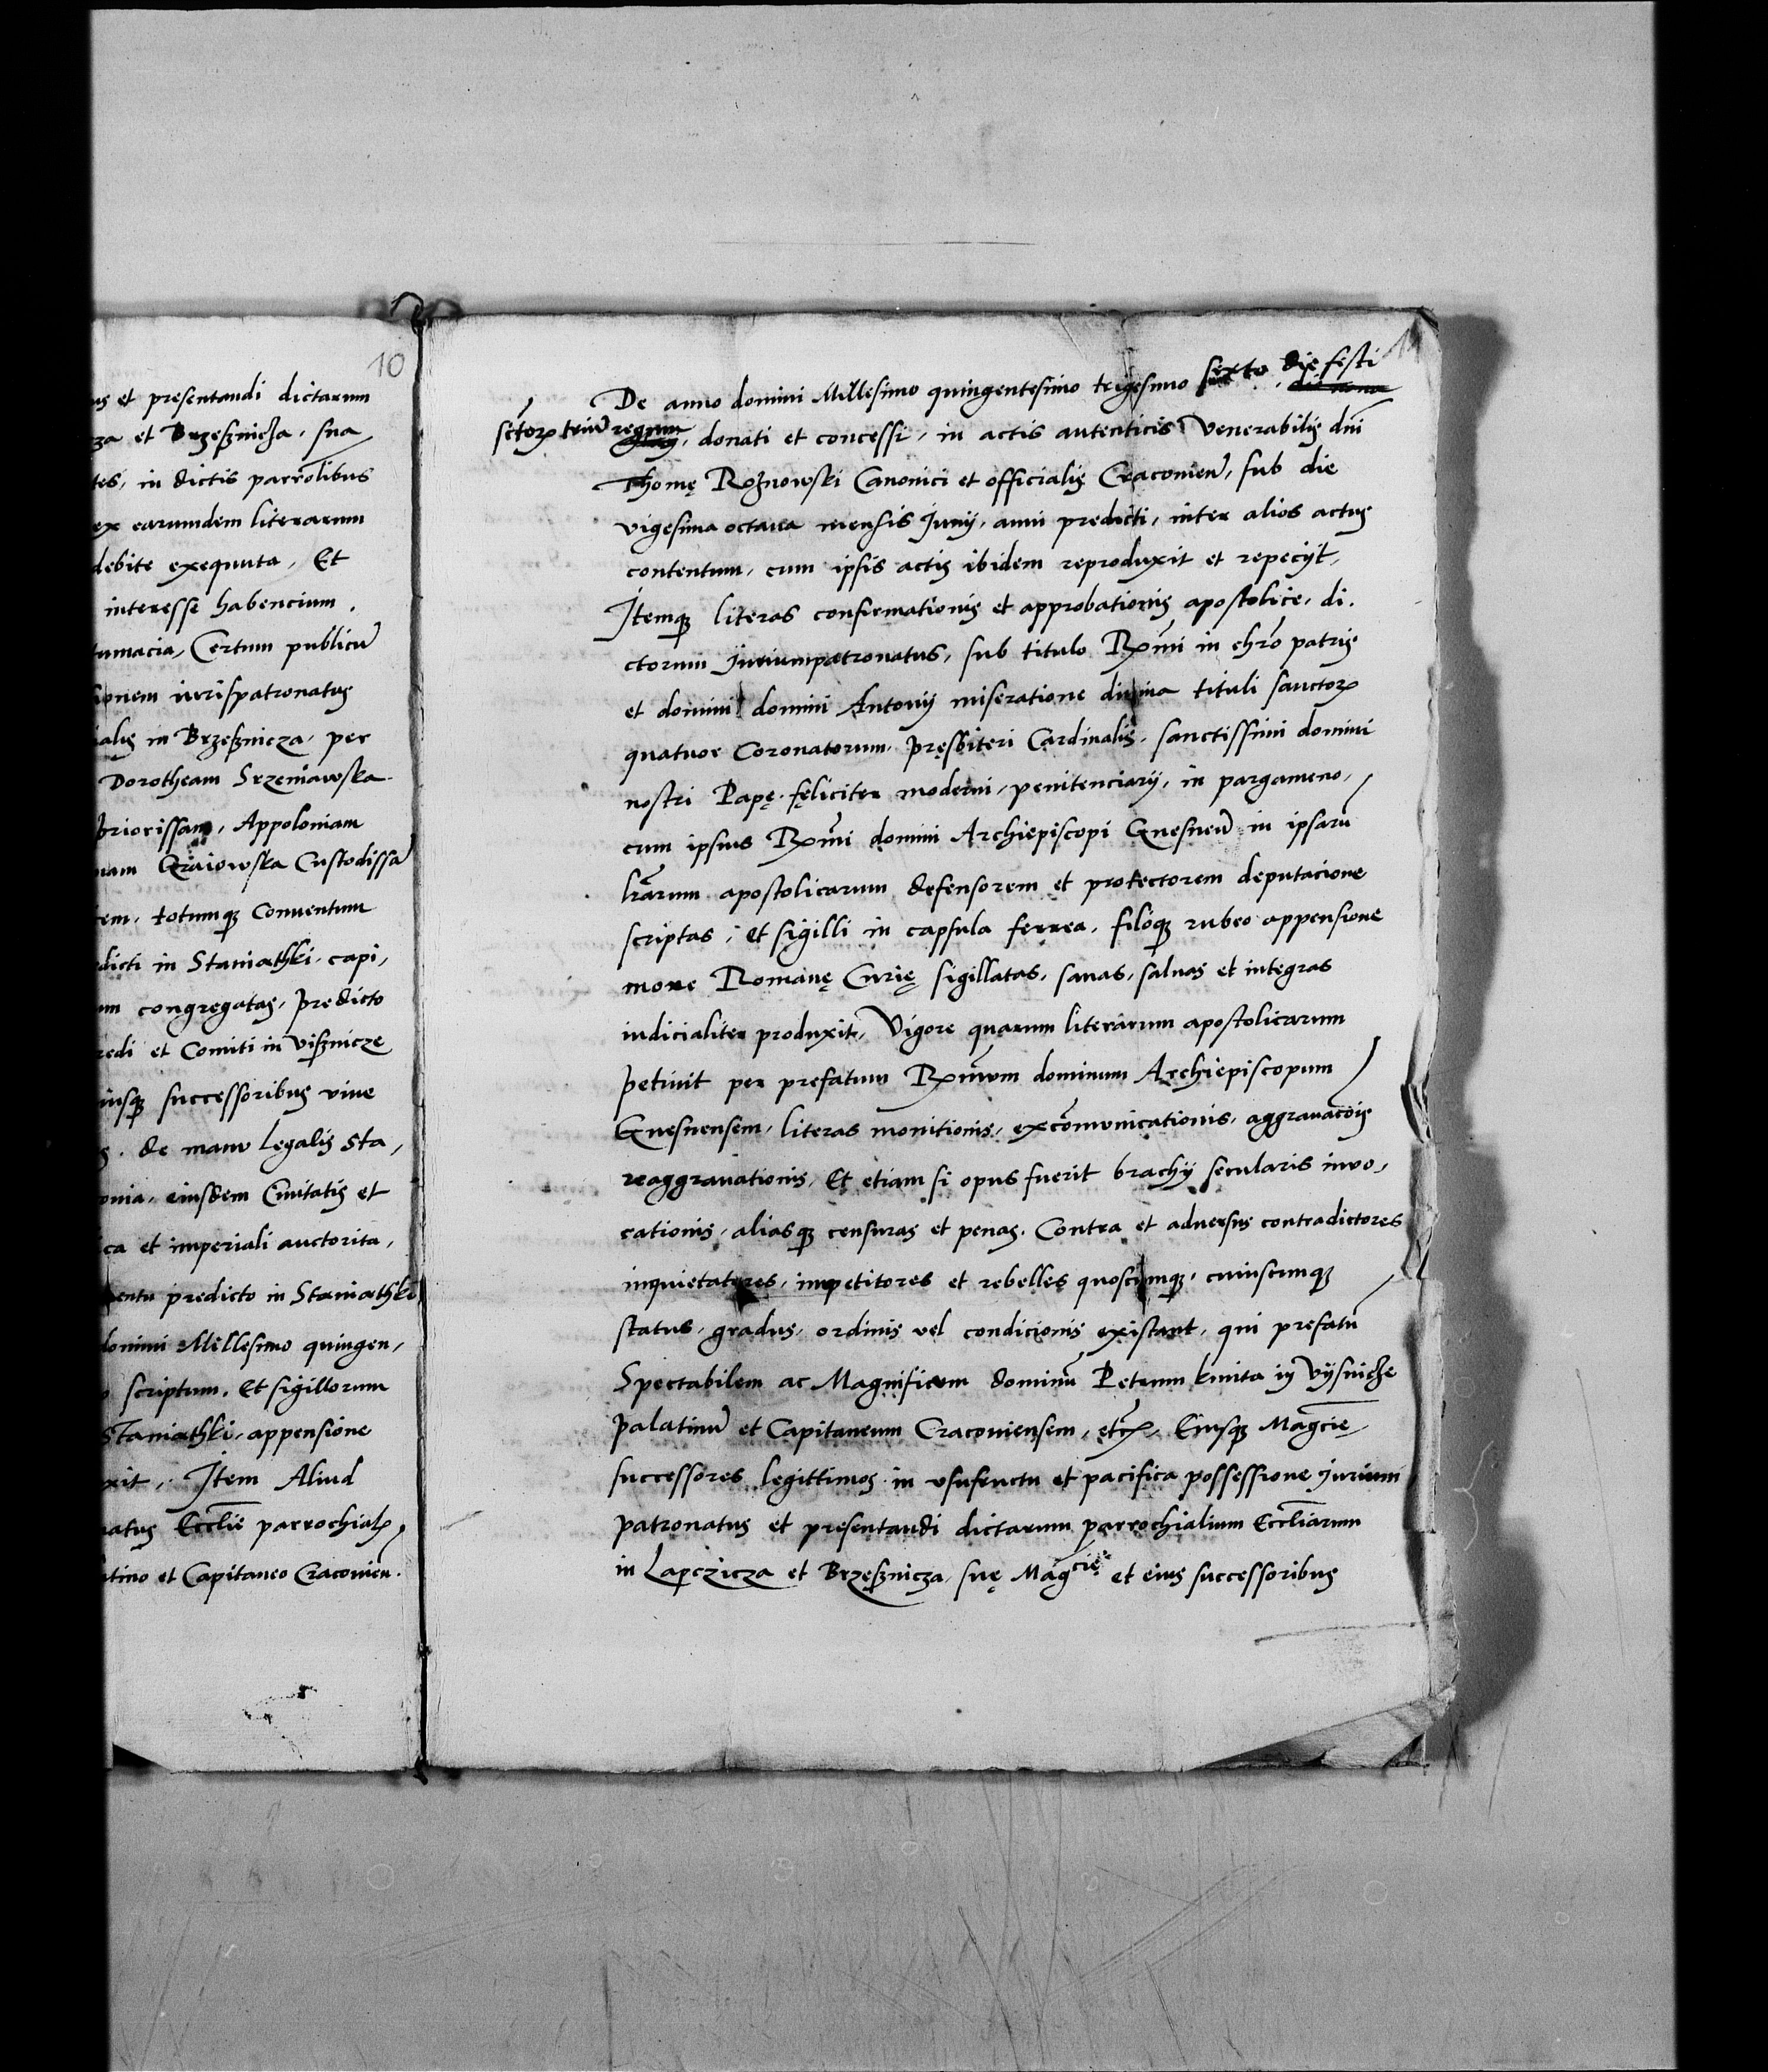 10
us et presentandi dictarum
za et Brzesznicza, sua
tes, in dictis parrolibus
ex earumdem literarum
debite exequuta, Et
interesse habencium,
tumacia, Certum publicũ
ionem iurispatronatus
ialis in Brzesznicza, per
Dorotheam Srzeniawska
priorissam, Appoloniam
nam Graiowska Custodissã
tem, totumqꝫ Conuentum
edicti in Staniathki, capi,
um congregatas, predicto
redi et Comiti in Visznicze
iusqꝫ successoribus viue
s. de manu Legalis Sta,
onia, eiusdem Ciuitatis et
ica et imperiali auctorita,
entu predicto in Staniathki
domini Millesimo quingen,
o scriptum, Et sigillorum
Staniathki, appensione
xit, Item Aliud
natus Ecclie parrochialꝭ
atino et Capitaneo Cracouien.
De anno domini Millesimo quingentesimo trigesimo sexto, die festi
sctorꝝ triũ regum, donati et concessi, in actis autenticis Venerabilis dni
Thomę Roznowski Canonici et officialis Cracouień, sub die
vigesima octaua mensis Junij, anni predicti, inter alios actus
contentum, cum ipsis actis ibidem reproduxit et repecijt,
Itemqꝫ literas confirmationis et approbationis apostolice, di.
ctorum Juriumpatronatus, sub titulo Rmi in chro patris
et domini domini Antonij miseratione diuina tituli sanctorꝝ
quatuor Coronatorum, presbiteri Cardinalis, sanctissimi domini
nostri Papę feliciter moderni, penitenciarij, in pargameno,
cum ipsius Rmi domini Archiepiscopi Gnesneñ in ipsarũ
lrarum apostolicarum defensorem et protectorem deputacione
scriptas, et sigilli in capsula ferrea, filoqꝫ rubeo appensione
more Romanę Curię sigillatas, sanas, saluas et integras
iudicialiter produxit, Vigore quarum literarum apostolicarum
petiuit per prefatum Rmum dominum Archiepiscopum
Gnesnensem, literas monitionis, excõmunicationis, aggrauacõis
reaggrauationis, Et etiam si opus fuerit brachij secularis inuo,
cationis, aliasqꝫ censuras et penas, Contra et aduersus contradictores
inquietatores, impetitores et rebelles quoscumqꝫ, cuiuscumqꝫ
status, gradus, ordinis vel condicionis existant, qui prefatũ
Spectabilem ac Magnificum dominũ Petrum kmita in Vijsnicze
palatinũ et Capitaneum Cracouiensem, etcꝫ, Eiusqꝫ Magcie,
successores legittimos in vsufructu et pacifica possessione Jurium
patronatus et presentandi dictarum parrochialium Eccliarum
in Lapczicza et Brzesznicza, suę Magcię et eius successoribus